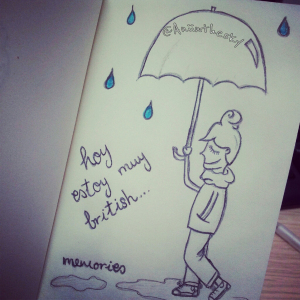 hoy
estoy muy
british...
memories